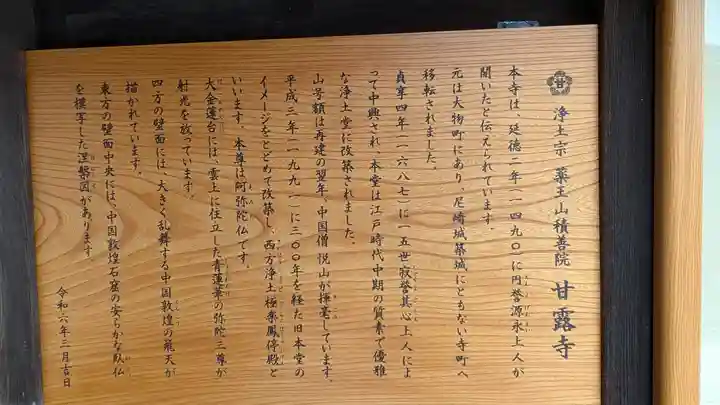 浄土宗 薬王山積善院 甘露寺
本寺は、延徳二年(一四九〇)に円誉源永上人が
開いたと伝えられています。
元は大物町にあり、尼崎城築城にともない寺町へ
移転されました。
貞享四年(一六八七)に一五世寂誉其心上人によ
って中興され、本堂は江戸時代中期の質素で優雅
な浄土堂に改築されました。
山号額は再建の翌年、中国僧悦山が揮毫しています。
平成三年(一九九一)に三〇〇年を経た旧本堂の
イメージをとどめて改築し、西方浄土極楽鳳停殿と
いいます。本尊は阿弥陀仏です。
大金蓮台には、雲上に住立した青蓮華の弥陀三尊が
射光を放っています。
四方の壁面には、大きく乱舞する中国敦煌の飛天が
描かれています。
東方の壁面中央には、中国敦煌石窟の安らかな臥仏
を模写した涅槃図があります
令和六年三月吉日